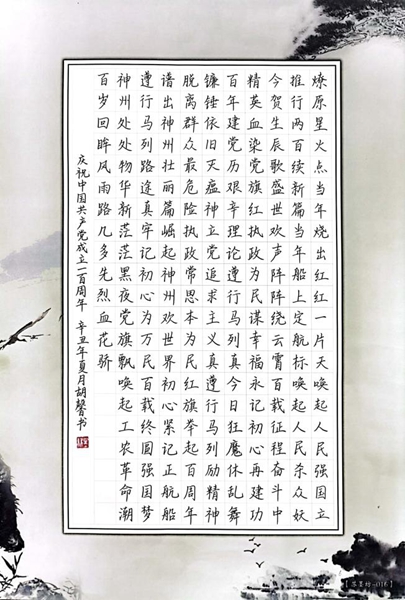 燎原星火点当年烧出红红一片天唤起人民强国立
推行两百续新篇当年船上定航标唤起人民杀众妖
今贺生辰歌盛世欢声阵阵绕云霄百载征程奋斗中
精英血染党旗红执政为民谋幸福永记初心再建功
百年建党历艰辛理论遵行马列真今日狂魔休乱舞
镰锤依旧灭瘟神立党追求主义真遵行马列励精神
脱离群众最危险执政常思本为民红旗举起百周年
谱出神州壮丽篇崛起神州欢世界初心紧记正航船
遵行马列路途真牢记初心为万民百载终圆强国梦
神州处处物华新茫茫黑夜党旗飘唤起工农革命潮
百岁回眸风雨路几多先烈血花骄
庆祝中国共产党成立一百周年 辛丑年夏月胡馨书